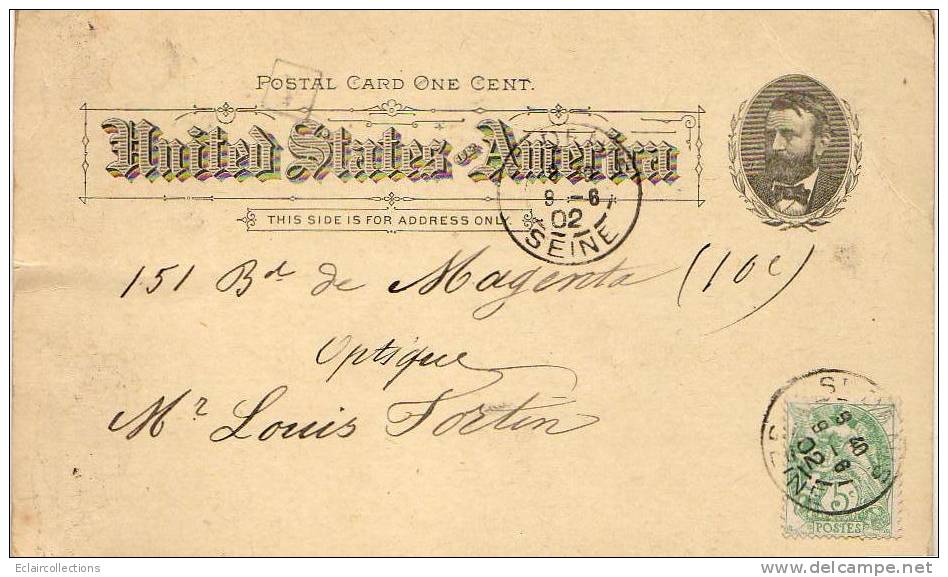 POSTAL CARD ONE CENT.
United States of America
THIS SIDE IS FOR ADDRESS ONLY.
9 -6
02
SEINE
151 Bd de Magenta (10e)
Optique
Mr Louis Fortin
8 40 S
9 -6
02
SEINE
5c
POSTES
Eclaircollections
www.delcampe.net